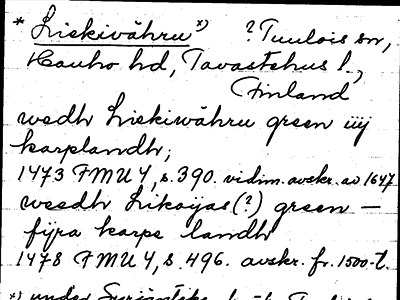 * Liskivähru x) ? Tuulois sn,
Hauho hd, Tavastehus l.,
Finland
wedh Liskiwähru green iiij
karplandh;
1473 FMU 4, s. 390. vidim. avskr. av 1647
weedh Likayas (?) green —
fijra karpe landh
1478 FMU 4, s. 496. avskr. fr. 1500-t.
x) under